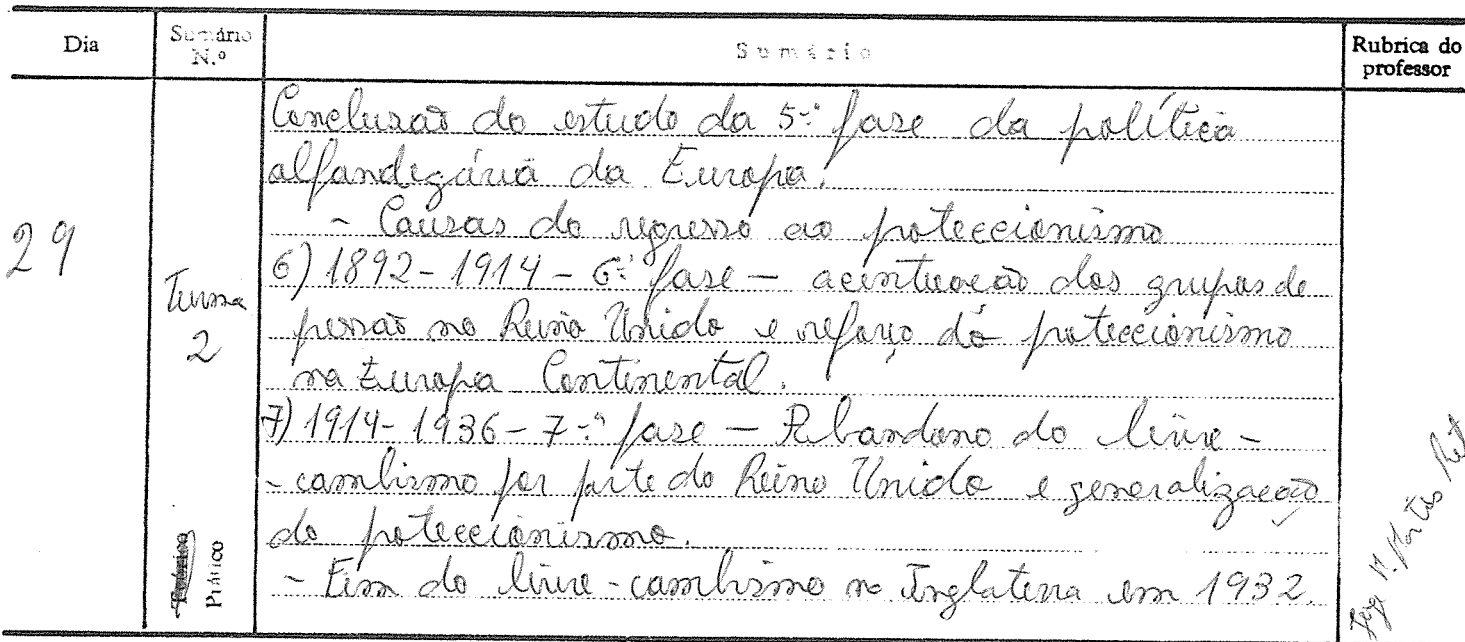 Dia
Sumário N.º
Sumário
Rubrica do professor
29
Turma 2
Teórico
Prático
Conclusão do estudo da 5.ª fase da política
alfandegária da Europa.
- Causas do regresso ao proteccionismo
6) 1892-1914 - 6.ª fase - acentuação dos grupos de
pressão no Reino Unido e reforço do proteccionismo
na Europa Continental.
7) 1914-1936 - 7.ª fase - Abandono do livre-
-cambismo por parte do Reino Unido e generalização
do proteccionismo.
- Fim do livre-cambismo na Inglaterra em 1932.